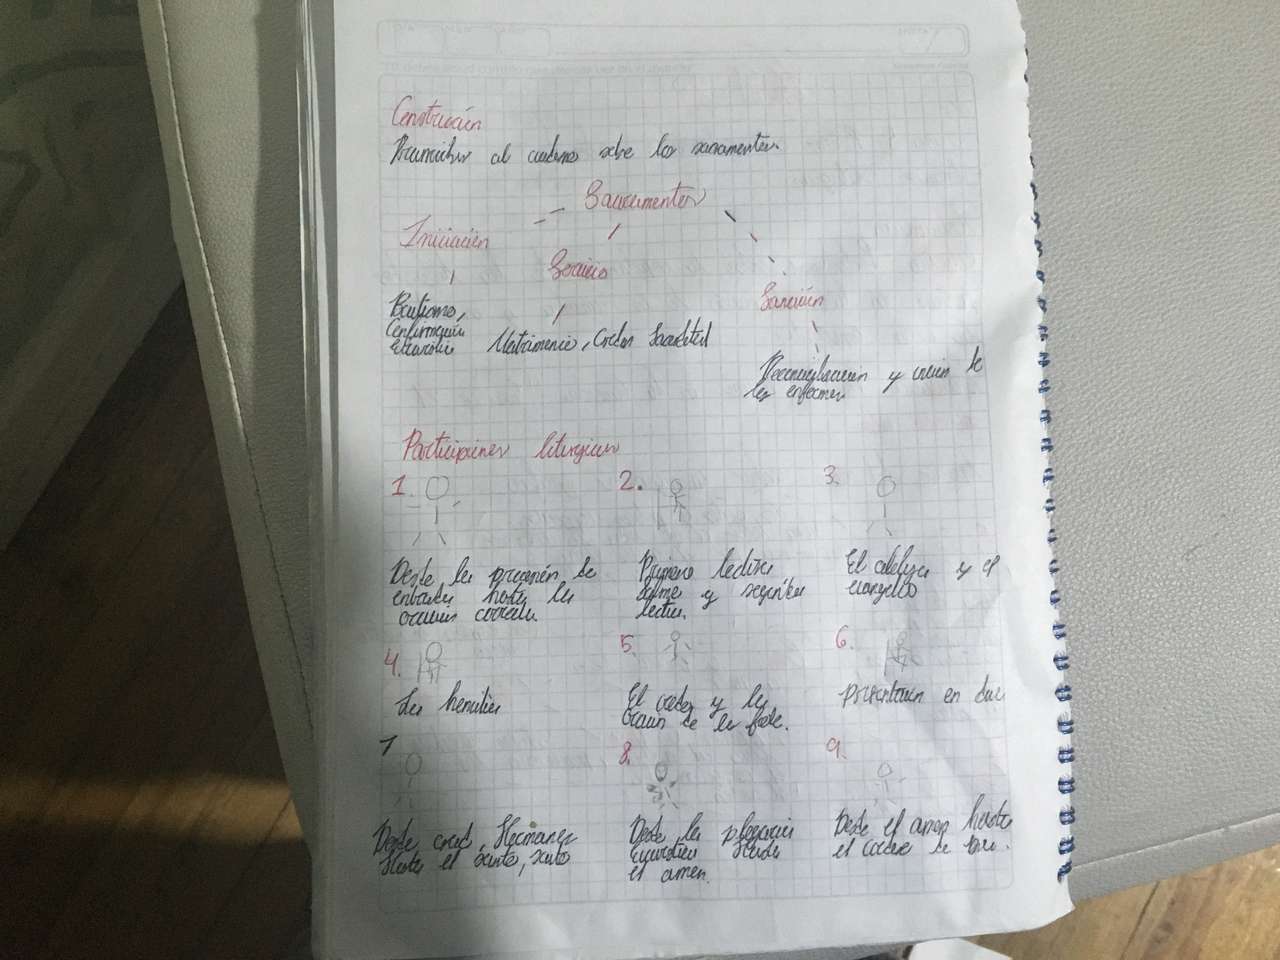 Construcción
al cuaderno sobre los sacramentos.
Sacramentos
Iniciación
Servicio
Sanación
Bautismo,
Confirmación
Eucaristía
Matrimonio, Orden Sacerdotal
Reconciliación y unción de
los enfermos
Participiones liturgicas
1.
2.
3.
Desde la procesión de
entrada hasta la
oración colecta.
Primera lectura
Salmo y segunda
lectura.
El aleluya y el
evangelio
4.
5.
6.
La homilia
El credo y la
oración de los fiele.
presentacion en due
7
8.
9.
Desde orad, Hermanos
Hasta el santo, santo
Desde la plegaria
eucaristica Hasta
el amen.
Desde el amen hasta
el cordero de